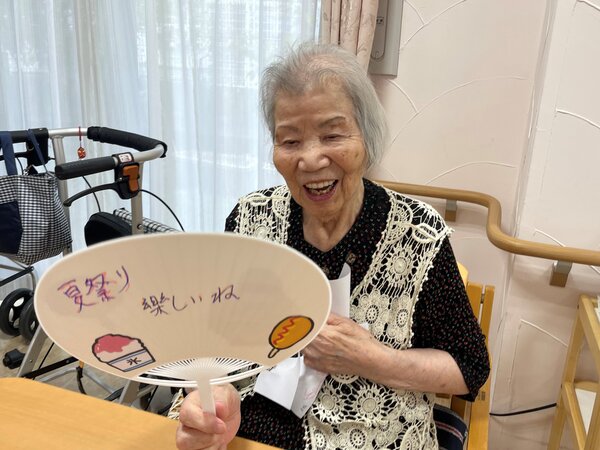 夏祭り
楽しいね
氷